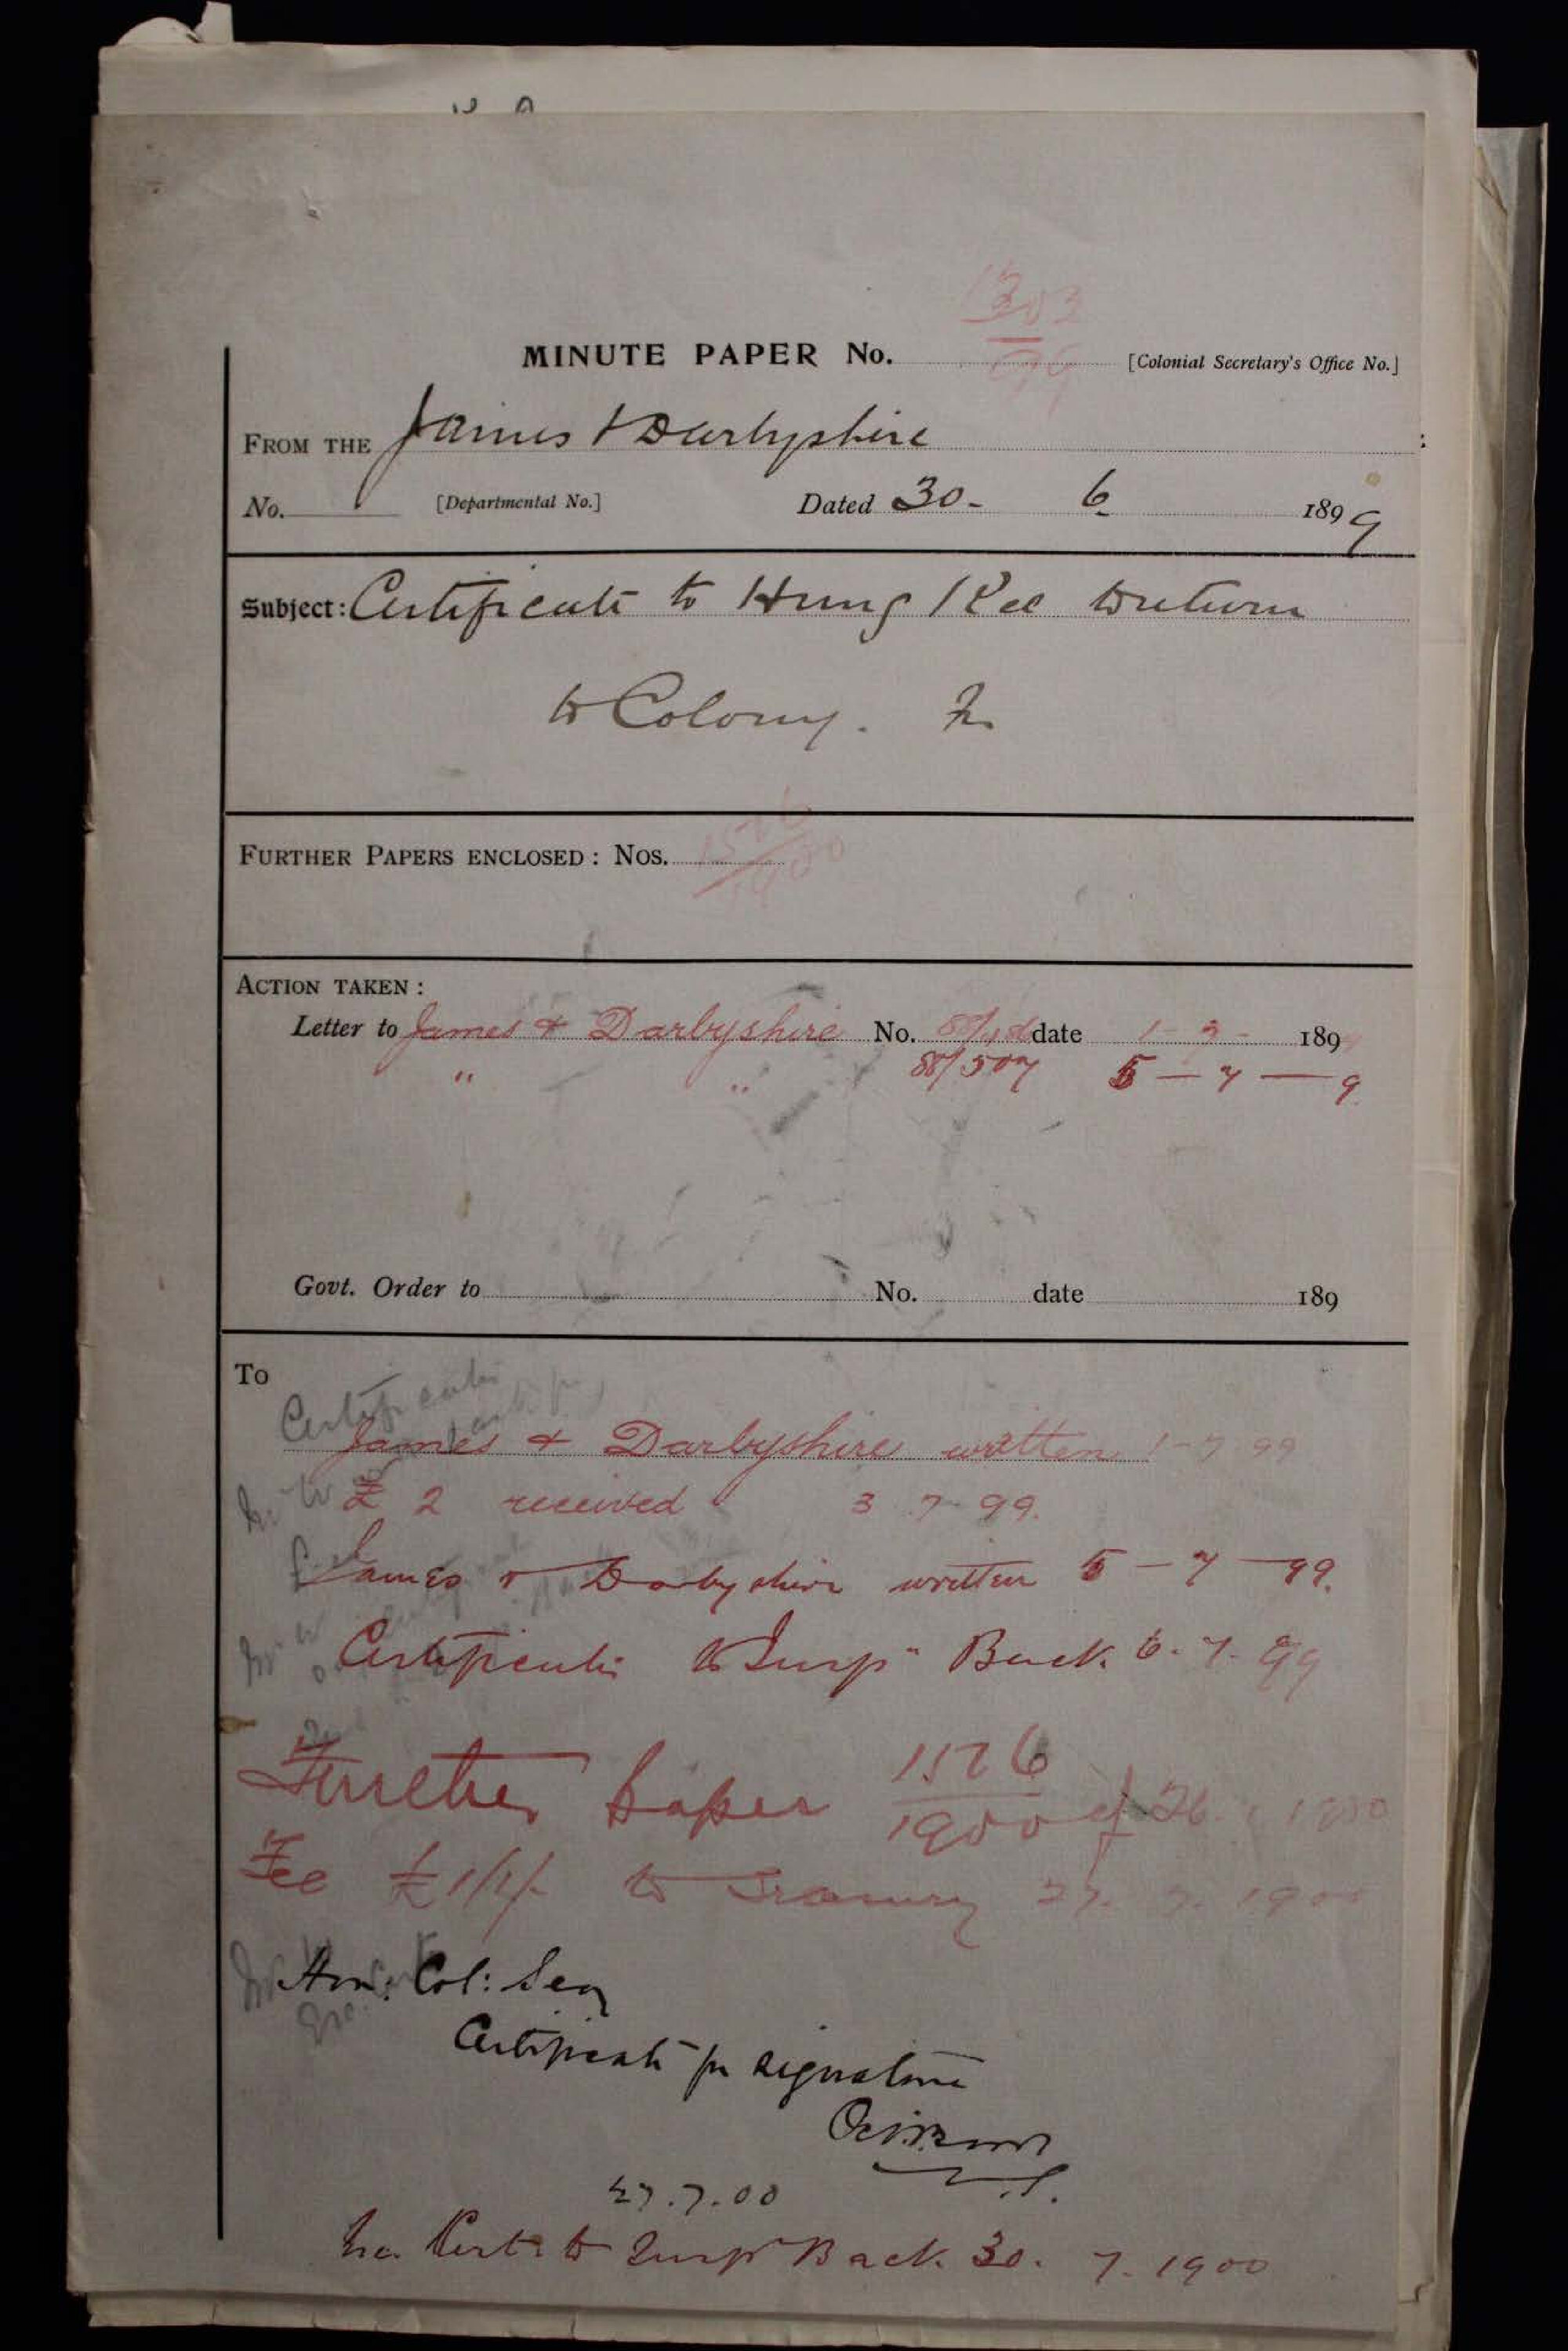 1303
99
MINUTE PAPER No. [Colonial Secretary's Office No.]
FROM THE James & Darbyshire
No. [Departmental No.] Dated 30 - 6 1899
Subject: Certificate to Hung Kee to return
to Colony.
FURTHER PAPERS ENCLOSED : NOS. 1526
1900
ACTION TAKEN :
Letter to James & Darbyshire No. date 1 - 7 - 189
" " 88/507 5 — 7 — 9
Govt. Order to No. date 189
To
Certificate
James & Darbyshire written 1-7 99
£ 2 received 3 7 99.
James & Darbyshire written 5 — 7 — 99.
Certificate to Insp Back 6. 7. 99
Further paper 1526
1900 of 26. 1900
Fee £1/1/- to Treasury 27. 7. 1900
Hon: Col: Secy
Certificate for signature
27.7.00
Certe to Inspr Back 30. 7. 1900